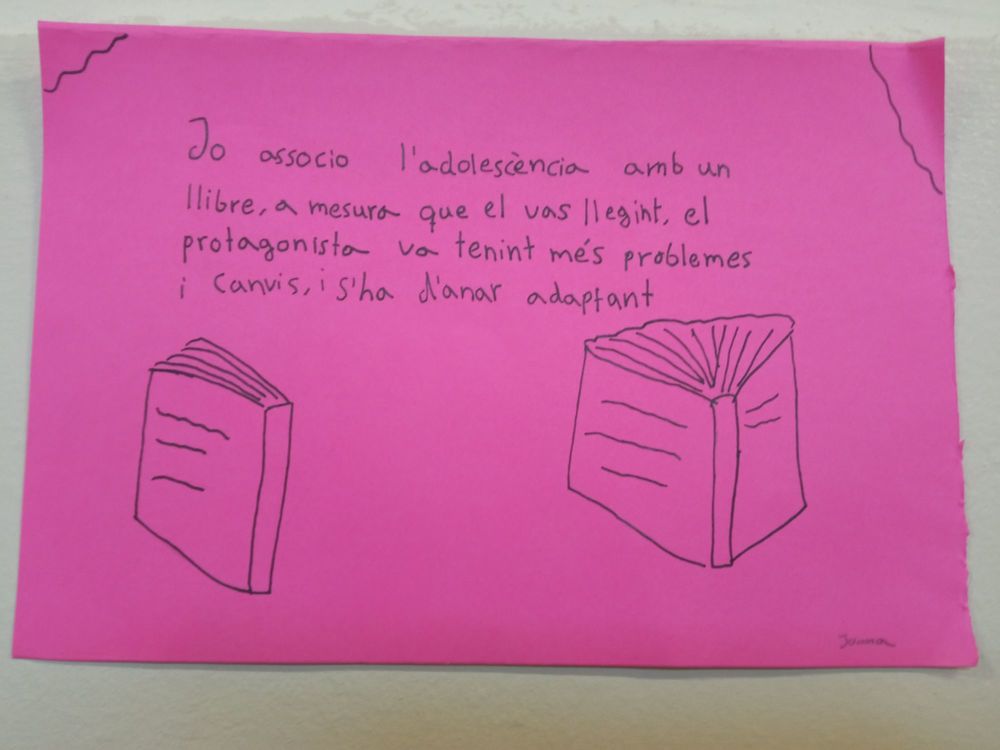 Jo associo l'adolescència amb un
llibre, a mesura que el vas llegint, el
protagonista va tenint més problemes
i canvis, i s'ha d'anar adaptant